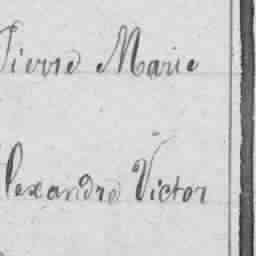 Pierre Marie
Alexandre Victor